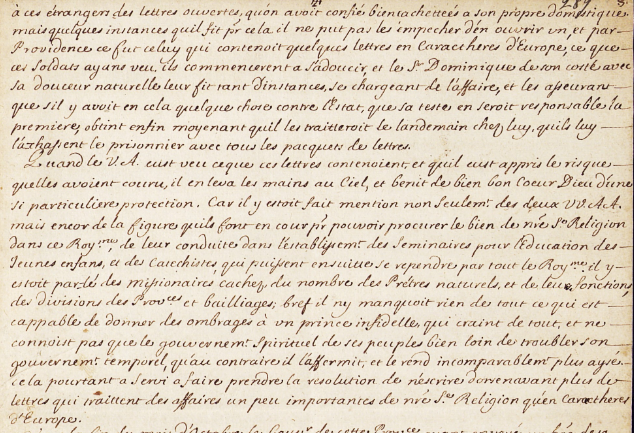 à ces étrangers des lettres ouvertes, qu'on avoit confié bien cachettées a son propre domestique
mais quelques instances qu'il fit pr cela, il ne put pas les empecher d'en ouvrir un, et par
Providence ce fut celuy qui contenoit quelques lettres en Caractheres d'Europe, ce que
ces Soldats ayans veu, ils commencerent a s'adoucir et le Sr Dominique de son costé avec
sa douceur naturelle leur fit tant d'instances, se chargeant de l'affaire, et les asseurant
que s'il y avoit en cela quelque chose contre l'Estat, que sa teste en seroit responsable la
premiere, obtint enfin moyenant qu'il les traitteroit le landemain chez luy, qu'ils luy
lachassent le prisonnier avec tous les pacquets de lettres.
Quand le V.A. eust veu ce que ces lettres contenoient, et qu'il eust appris le risque
qu'elles avoient couru, il en leva les mains au Ciel, et benit de bien bon Coeur Dieu d'une
si particuliere protection. Car il y estoit fait mention non Seulemt des deux VV.AA.
mais encor de la figure qu'ils font en cour pr pouvoir procurer le bien de nre Ste Religion
dans ce Roy.me, de leur conduite dans l'établissemt des Seminaires pour l'éducation des
Jeunes enfans, et des Catechistes, qui puissent ensuitte se rependre par tout le Roy.me il y
estoit parlé des missionaires cachez, du nombre des Prêtres naturels, et de leurs fonctions,
des divisions des Provces et bailliages; bref il n'y manquoit rien de tout ce qui est
cappable de donner des ombrages à un prince infidelle, qui craint de tout, et ne
connoist pas que le gouvernemt Spirituel de ses peuples bien loin de troubler son
gouvernemt temporel, qu'au contraire il l'affermit, et le rend incomparablemt plus aysé.
cela pourtant a servi a faire prendre la resolution de n'escrire dorenavant plus de
lettres qui traittent des affaires un peu importantes de nre Ste Religion qu'en Caractheres
d'Europe.